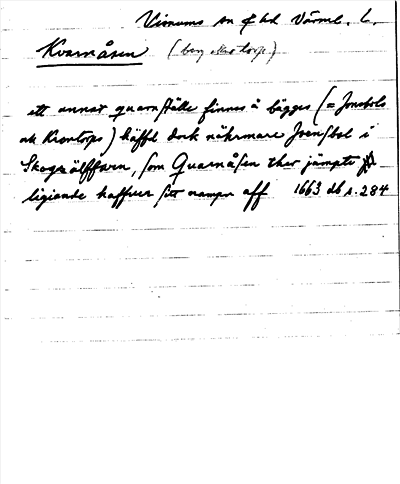 Visnums sn f bd Värml. l.
Kvarnåsen (beg. Krontorp)
ett annat quarnställe finnes å bägges (= Jonsbols
och Krontorps) häffd dock närmare Joensbol i
Skogzälffwen, som Quarnåsen ther jämpte
ligiande haffwer sitt nampn aff 1663 db s. 284